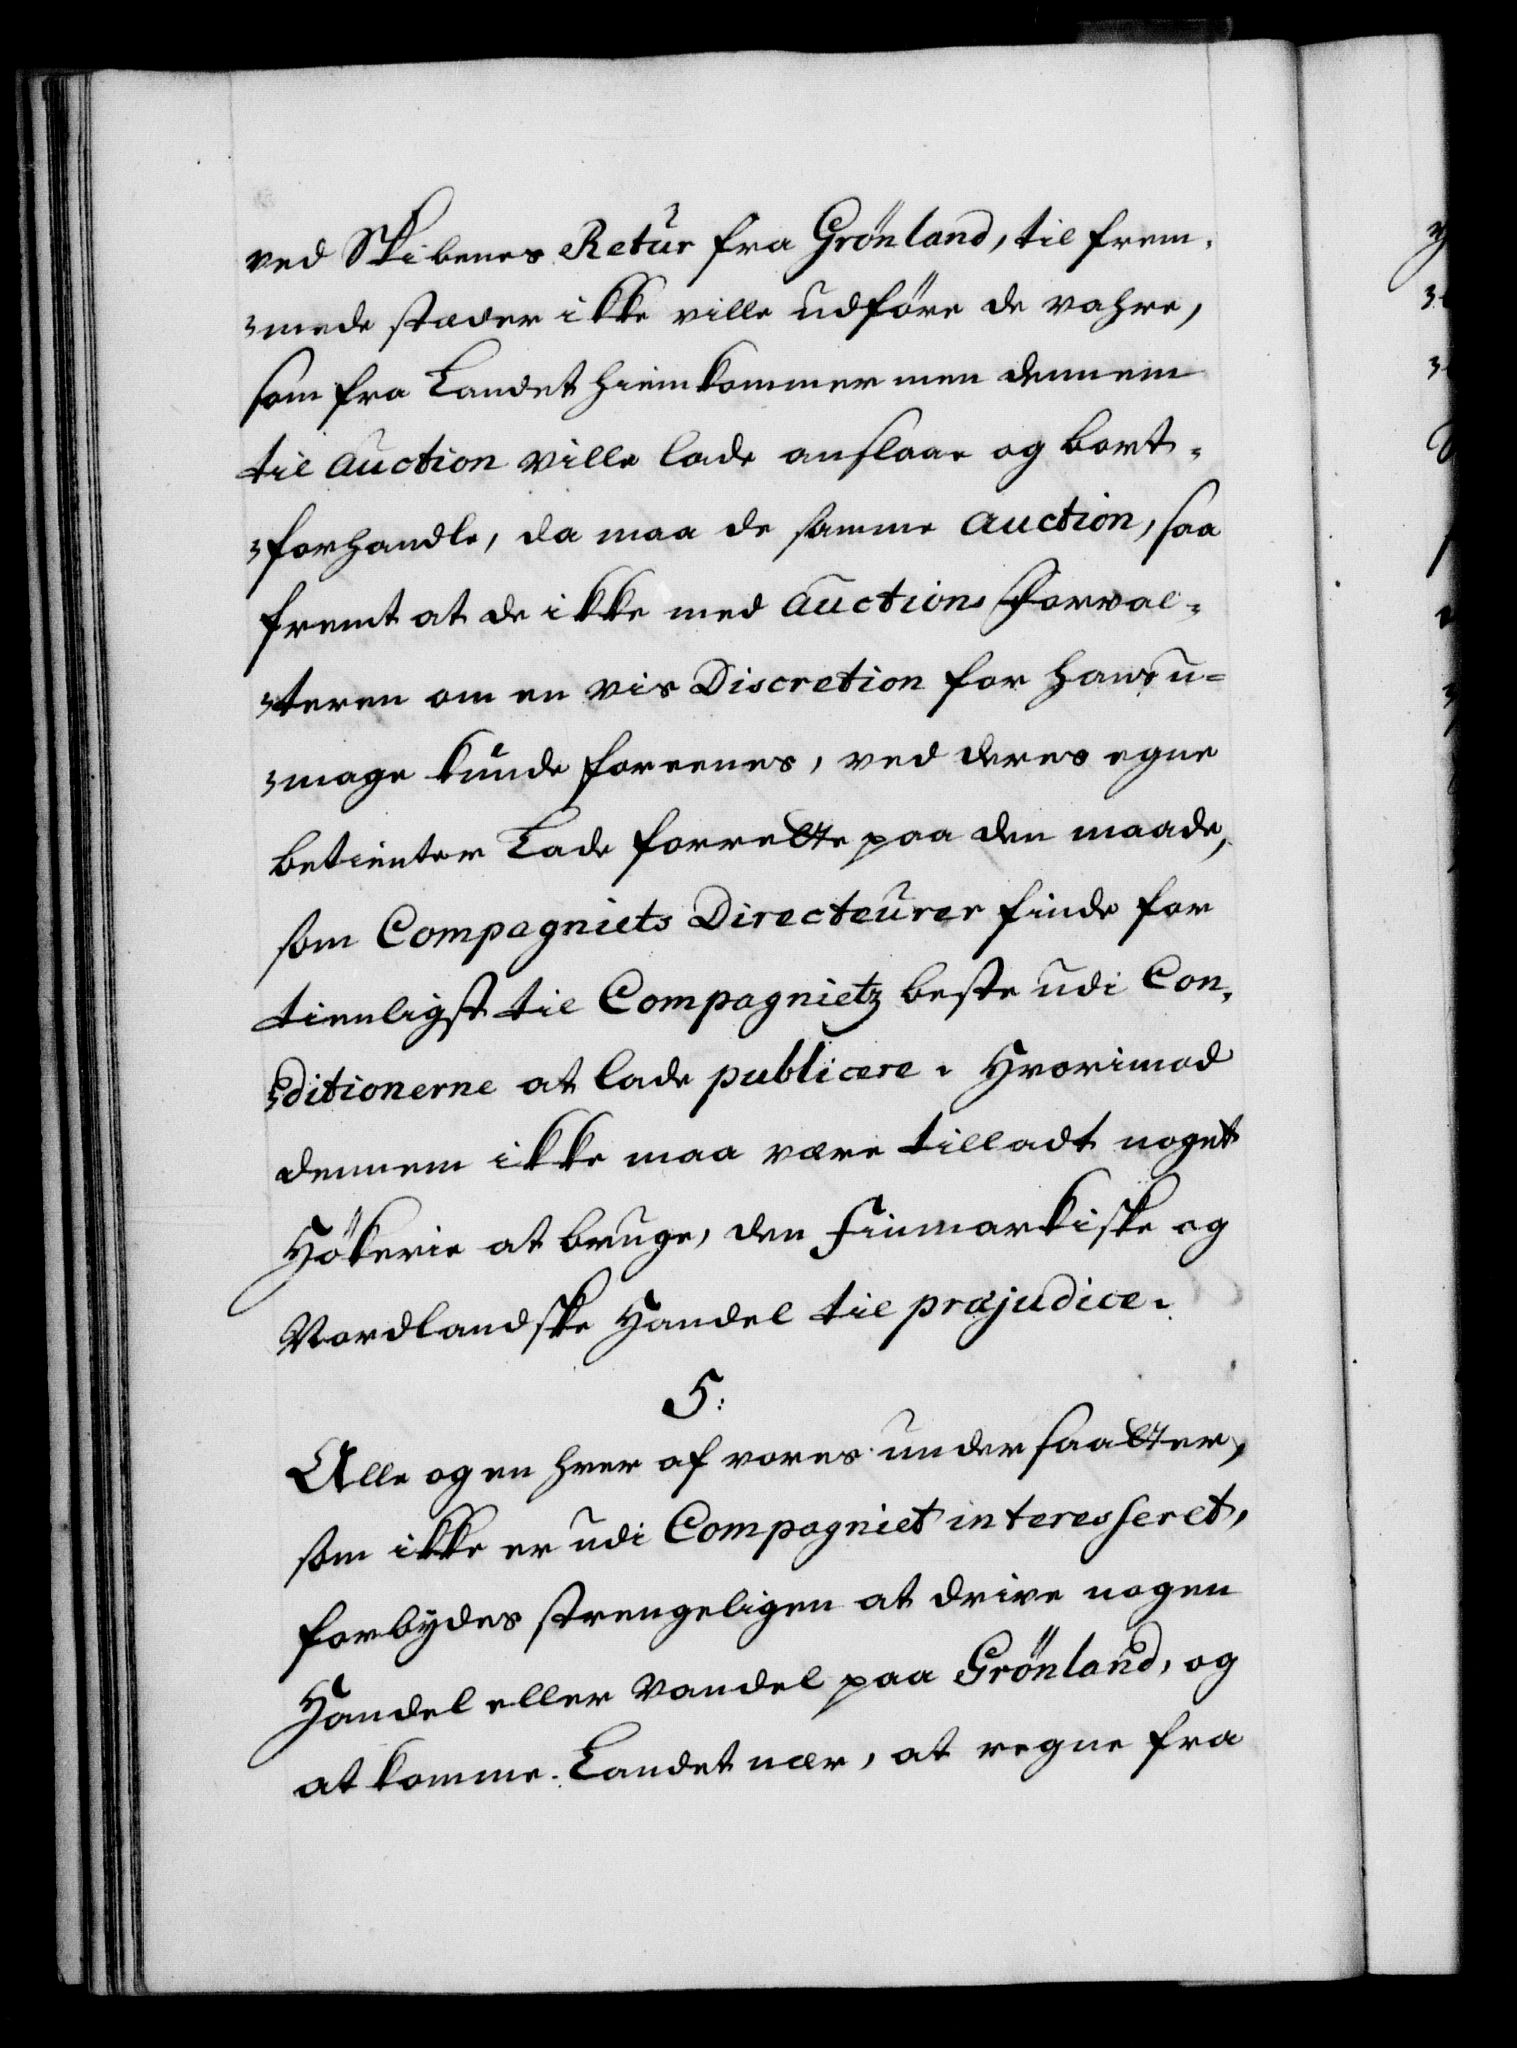 ved Skibenes Retur fra Grönland, til frem-
-mede stæder ikke ville udföre de vahre,
som fra Landet hiemkommer men dennem
til auction ville lade anslaae og bort-
-forhandle, da maa de samme auction, saa
fremt at de ikke med auctions Forval-
-teren om en vis Discretion for hans u-
-mage kunde foreenes, ved deres egne
betienter Lade forrette paa den maade,
som Compagniets Directeurer finde for
tienligst til Compagnietz beste udi Con-
-ditionerne at lade publicere. Hvorimod
dennem ikke maa være tilladt noget
Hökerie at bruge, den Finmarkiske og
Nordlandske Handel til præjudice.
5:
Alle og en hver af vores undersaatter,
som ikke er udi Compagniet interesseret,
forbydes strengeligen at drive nogen
Handel eller Vandel paa Grönland, og
at komme Landet nær, at regne fra